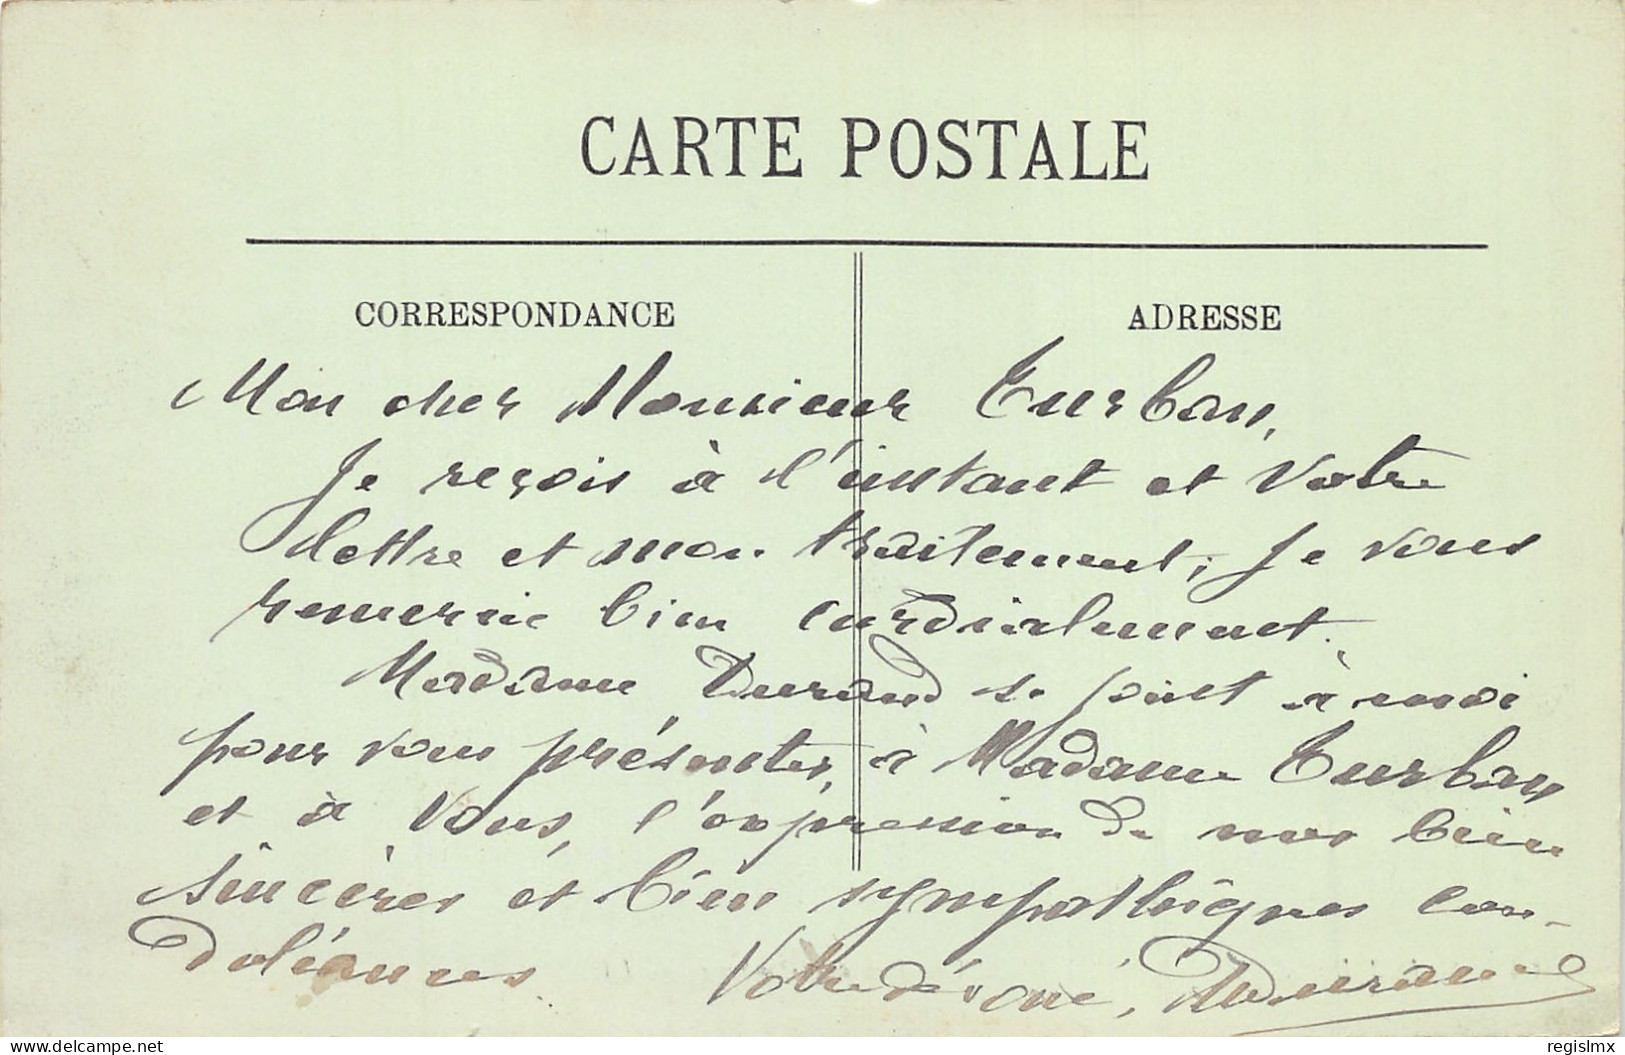 CARTE POSTALE
CORRESPONDANCE
ADRESSE
Mon cher Monsieur Turban,
Je reçois à l'instant et votre
lettre et mon traitement; je vous
remercie bien cordialement.
Madame Durand se joint à moi
pour vous présenter, à Madame Turban
et à vous, l'expression de nos bien
sincères et bien sympathiques con-
doléances
Votre dévoué, Durand
delcampe.net
regislmx